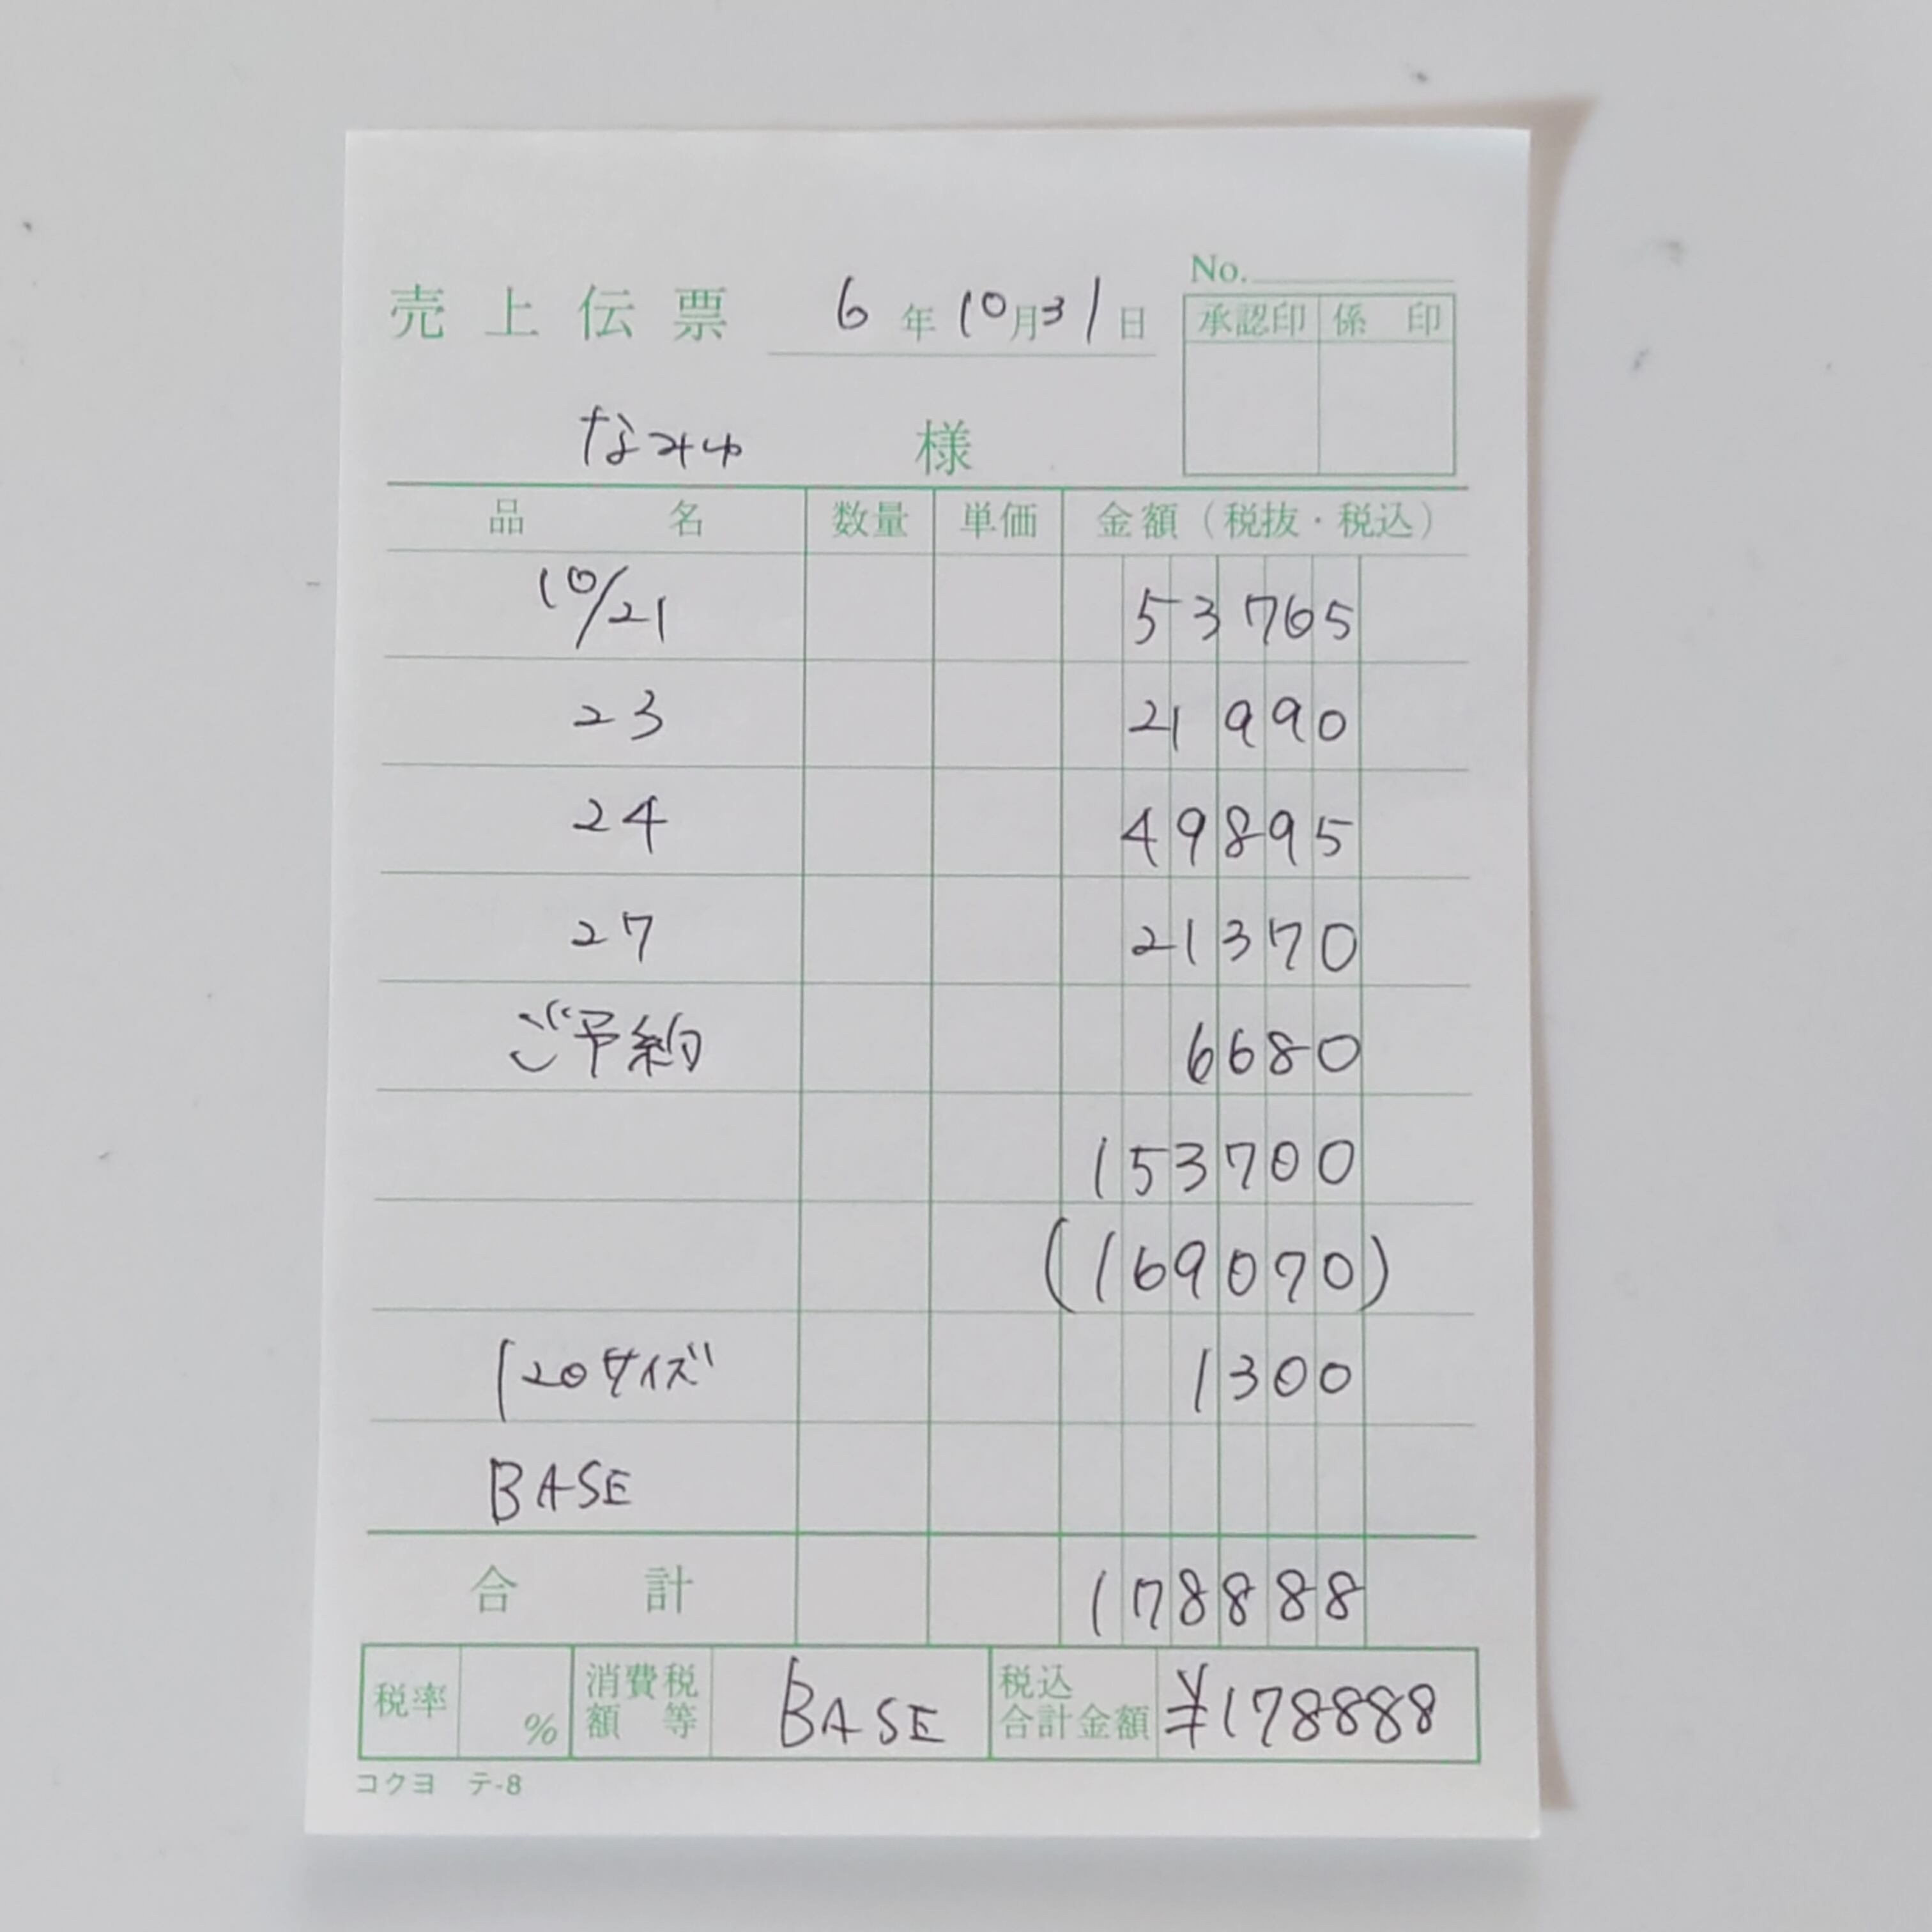 No.
売上伝票 6年10月31日
承認印 係印
なみゆ 様
品名 数量 単価 金額(税抜・税込)
10/21 53765
23 21990
24 49895
27 21370
ご予約 6680
153700
(169070)
120サイズ 1300
BASE
合計 178888
税率 % 消費税額等 BASE 税込合計金額 ¥178888
コクヨ テ-8